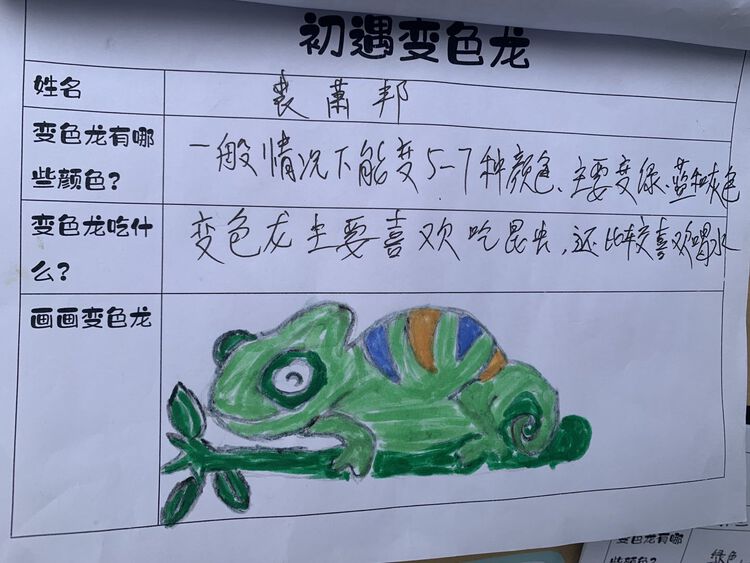 初遇变色龙
姓名
裴萧邦
变色龙有哪
些颜色?
一般情况下能变5-7种颜色、主要变绿、蓝和灰色
变色龙吃什
么?
变色龙主要喜欢吃昆虫,还比较喜欢喝水
画画变色龙
变色龙有哪
些颜色?
绿色